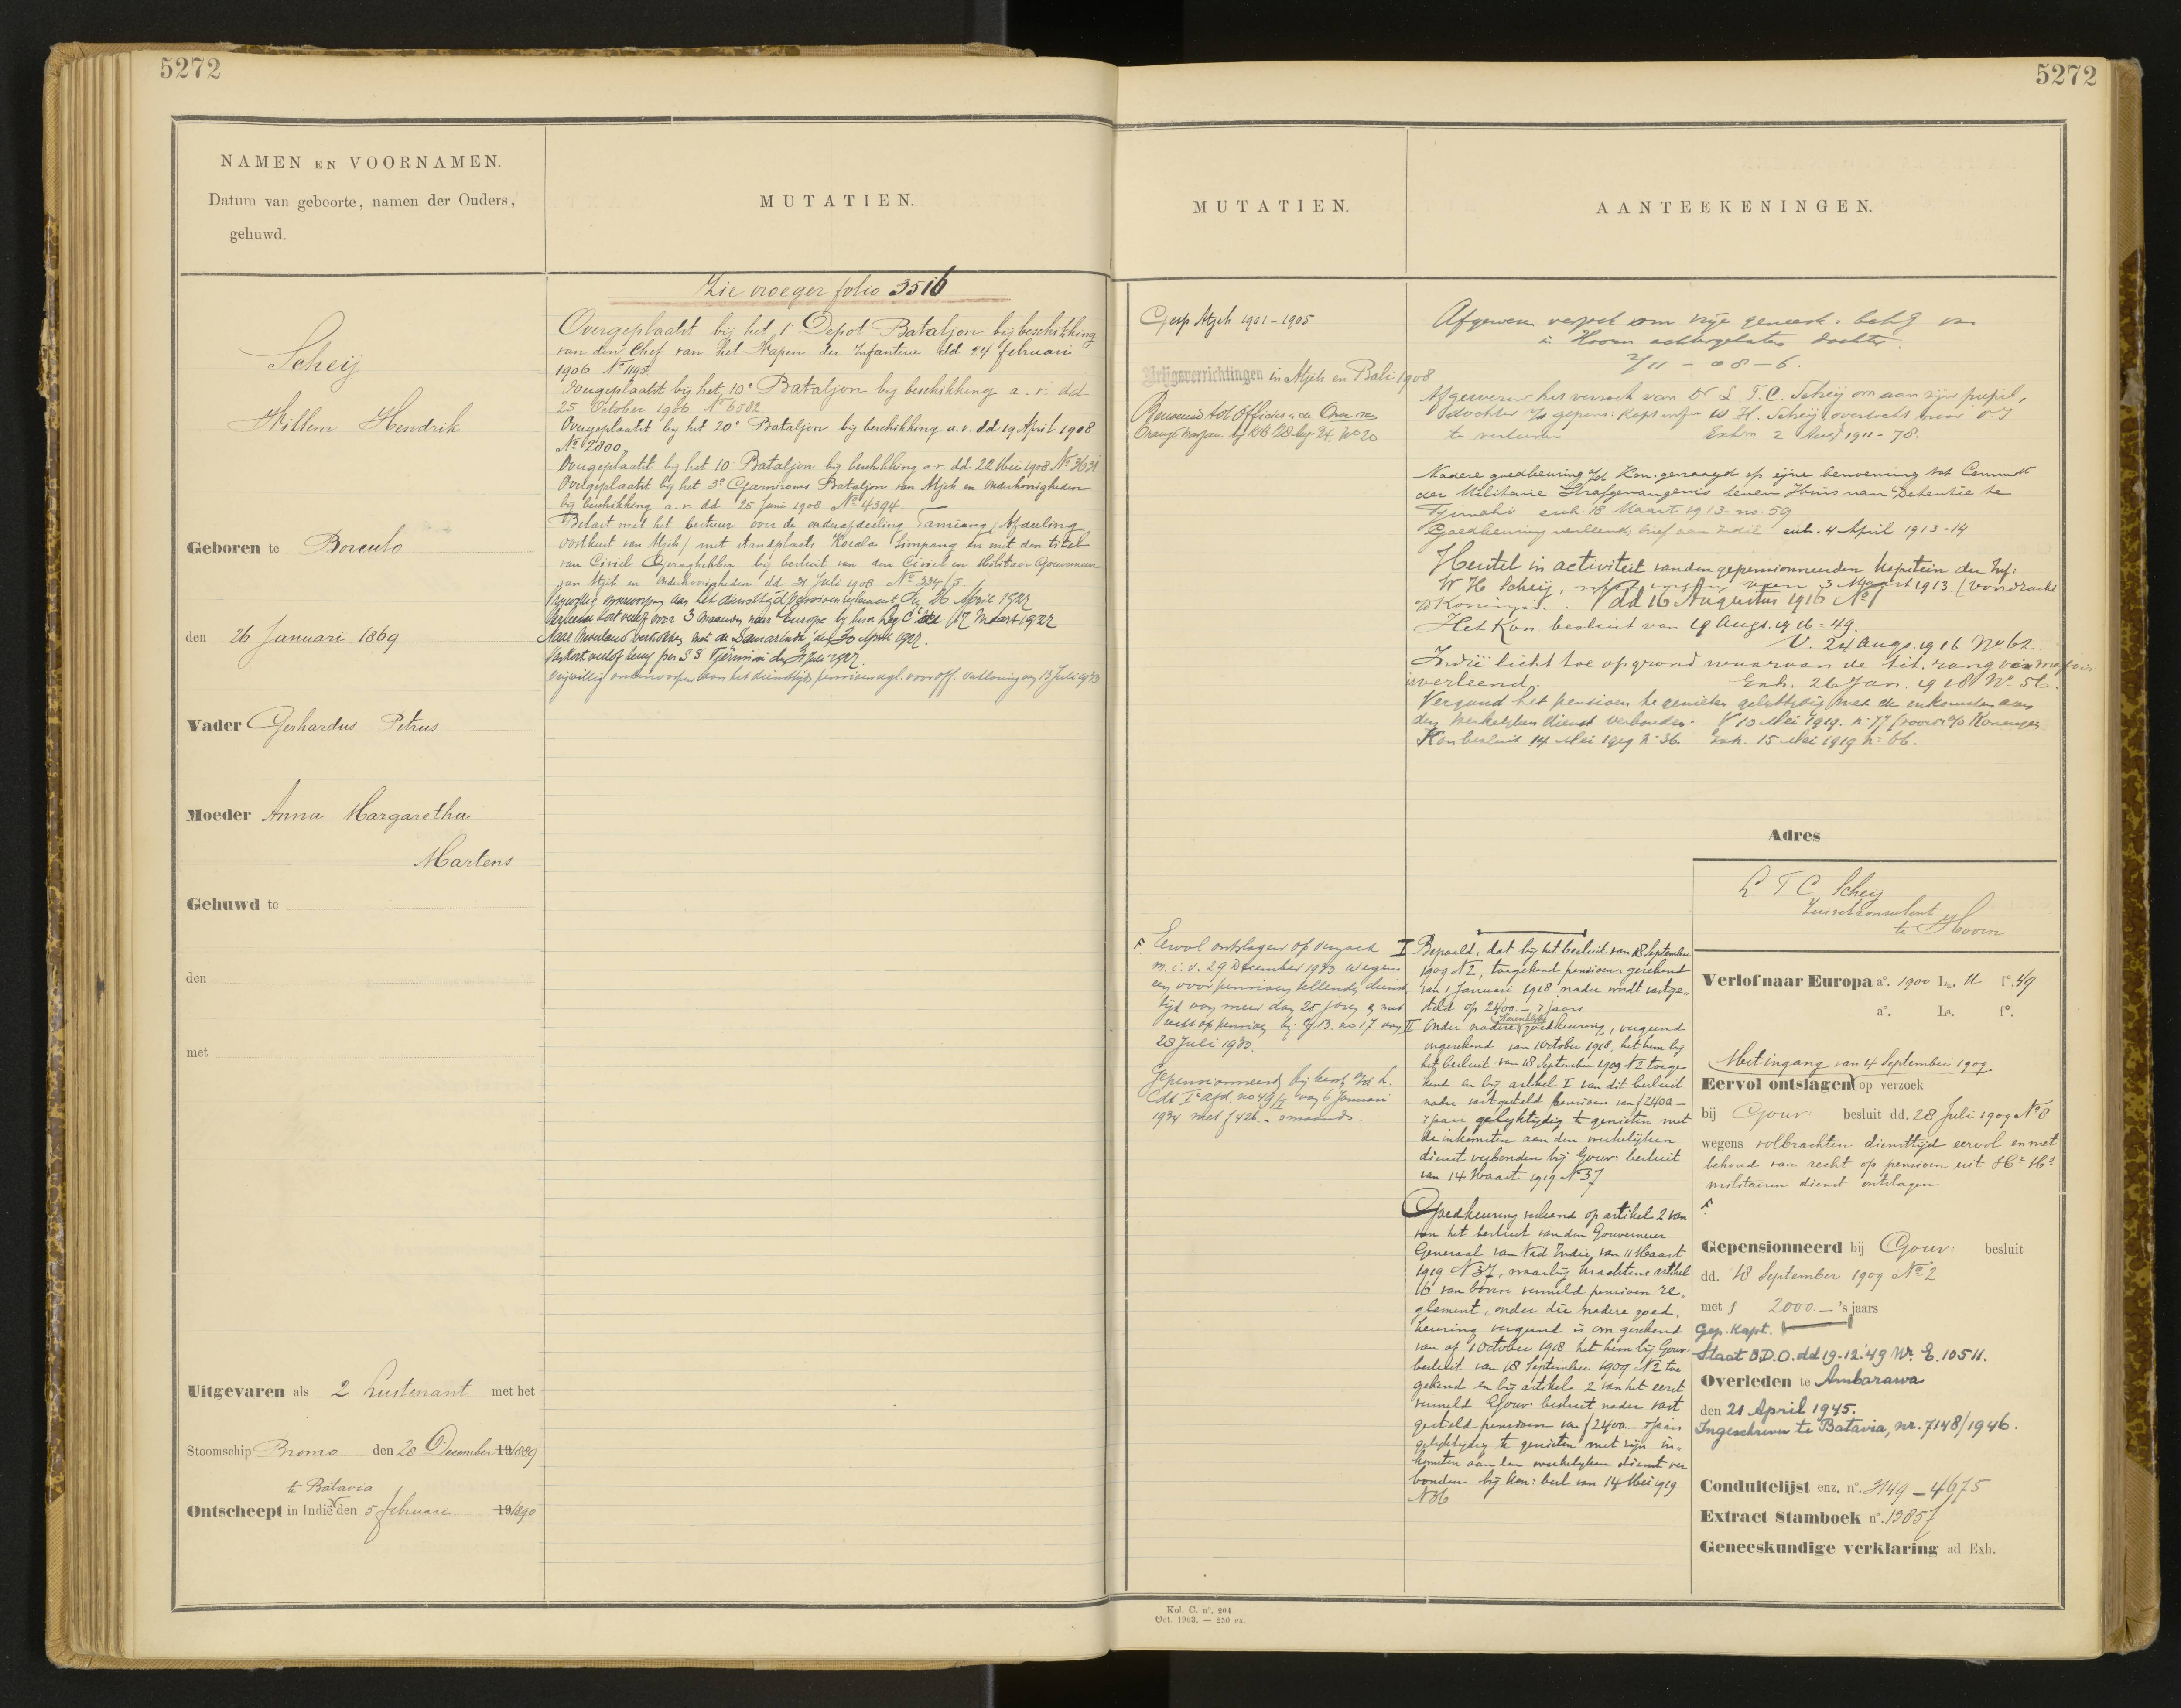 5272
NAMEN EN VOORNAMEN.
Datum van geboorte, namen der Ouders,
gehuwd.
Scheij
Willem Hendrik
Geboren te Borculo
den 26 Januari 1869
Vader Gerhardus Petrus
Moeder Anna Margaretha
Martens
Gehuwd te
den
met
Uitgevaren als 2 Luitenant met het
Stoomschip Bromo den 28 December 19/1889
te Batavia
Ontscheept in Indië den 5 februari 19/1890
MUTATIEN.
Zie vroeger folio 3516
Overgeplaatst bij het 1e Depot Bataljon bij beschikking
van den Chef van het Wapen der Infanterie dd 24 februari
1906 No 1195.
Overgeplaatst bij het 10e Bataljon bij beschikking a.v. dd
25 October 1906 No 6582
Overgeplaatst bij het 20e Bataljon bij beschikking a.v. dd 19 April 1908
No 2800
Overgeplaatst bij het 10 Bataljon bij beschikking a.v. dd 22 Mei 1908 No 3631
Overgeplaatst bij het 3e Garnizoens Bataljon van Atjeh en Onderhoorigheden
bij beschikking a.v. dd 25 Juni 1908 No 4394.
Belast met het bestuur over de onderafdeeling Tamiang (Afdeeling
Oostkust van Atjeh) met standplaats Koeala Simpang en met den titel
van Civiel Gezaghebber bij besluit van den Civiel en Militair Gouverneur
van Atjeh en Onderhoorigheden dd 31 Juli 1908 No 334/5.
Vrijwillig onderworpen aan het diensttijd pensioenreglement 26 April 1927
Verleend kort verlof voor 3 maanden naar Europa bij 17 Maart 1927
Naar Nederland vertrokken met de Samarinda den 20 April 1927.
Van kort verlof terug per SS Tjerimai den 31 Juli 1927.
Vrijwillig onderworpen aan het diensttijd pensioenregl. voor off. 13 Juli 1933
5272
MUTATIEN.
Gesp Atjeh 1901-1905
Krijgsverrichtingen in Atjeh en Bali 1908
Benoemd tot Officier i.d. Orde van
Oranje Nassau bij KB 28 No 20
F. Eervol ontslagen op verzoek
m.i.v. 29 December 1933 wegens
een voor pensioen tellenden dienst
tijd van meer dan 25 jaren en met
recht op pensioen bij G.B. no 17 van
28 Juli 1933.
Gepensionneerd bij
Cdt Ie afd. no 49/I van 6 Januari
1934 met f 426.- 's maands.
Kol. C. n°. 204
Oct. 1903. — 250 ex.
AANTEEKENINGEN.
Afgewezen verzoek om vrije geneesk. beh.g van
in Hoorn achtergelaten dochter
2/11 - 08 - 6.
Afgewezen het verzoek van Dr L.T.C. Scheij om aan zijn pupil,
dochter v/d gepens. Kapt W.H. Scheij overtocht
te verleenen Exh. 2 Aug 1911 - 78.
Nadere goedkeuring v/d Kon. gevraagd op zijne benoeming tot Commandt
der Militaire Strafgevangenis tevens Huis van Detentie te
Tjimahi exh. 18 Maart 1913 - no. 59
Goedkeuring verleend, brief aan Indië exh. 4 April 1913 - 14
Herstel in activiteit van den gepensionneerden Kapitein der Inf:
W H Scheij, 3 Maart 1913. (Voordracht
a/d Koningin. dd 16 Augustus 1916 No 1
Het Kon. besluit van 19 Augs. 1916 - 49.
V. 24 Augs. 1916 No 62
Indië licht toe op grond waarvan de tit. rang van majoor
is verleend. Exh. 26 Jan. 1918 No 56.
Vergund het pensioen te genieten gelijktijdig met de inkomsten aan
den werkelijken dienst verbonden. V 10 Mei 1919. no 77 (voordr. a/d Koningin
Kon besluit 14 Mei 1919 no 36 Exh. 15 Mei 1919 no 66.
I Bepaald, dat bij het besluit van 18 September
1909 No 2, toegekend pensioen, gerekend
van 1 Januari 1918 nader wordt vastge-
steld op 2400.- 's jaars
II Onder nadere Koninklijke goedkeuring, vergund
ingerekend van 1 October 1918, het hem bij
het besluit van 18 September 1909 No 2 toege
kend en bij artikel I van dit besluit
nader vastgesteld pensioen van f 2400.-
's jaars gelijktijdig te genieten met
de inkomsten aan den werkelijken
dienst verbonden bij Gouv: besluit
van 14 Maart 1919 No 37
Goedkeuring verleend op artikel 2 van
van het besluit van den Gouverneur
Generaal van Ned. Indië, van 11 Maart
1919 No 37, waarbij krachtens artikel
16 van boven vermeld pensioen re-
glement, onder die nadere goed-
keuring vergund is om gerekend
van af 1 October 1918 het hem bij Gouv.
besluit van 18 September 1909 No 2 toe
gekend en bij artikel 2 van het eerst
vermeld Gouv. besluit nader vast
gesteld pensioen van f 2400.- 's jaars
gelijktijdig te genieten met zijn in-
komsten aan den werkelijken dienst ver
bonden bij Kon: besl van 14 Mei 1919
No 36
Adres
L T C Scheij
Zuivelconsulent
te Hoorn
Verlof naar Europa a°. 1900 La. U f°. 49
a°. La. f°.
Met ingang van 4 September 1909
Eervol ontslagen op verzoek
bij Gouv: besluit dd. 28 Juli 1909 No 8
wegens volbrachten diensttijd eervol en met
behoud van recht op pensioen uit Hr. Ms.
militairen dienst ontslagen
F.
Gepensionneerd bij Gouv: besluit
dd. 18 September 1909 No 2
met f 2000.- 's jaars
Gep. Kapt.
Staat O.D.O. dd 19-12-'49 Nr. E. 10511.
Overleden te Ambarawa
den 21 April 1945.
Ingeschreven te Batavia, nr. 7148/1946.
Conduitelijst enz. n°. 3149 - 4675
Extract Stamboek n°. 13857
Geneeskundige verklaring ad Exh.